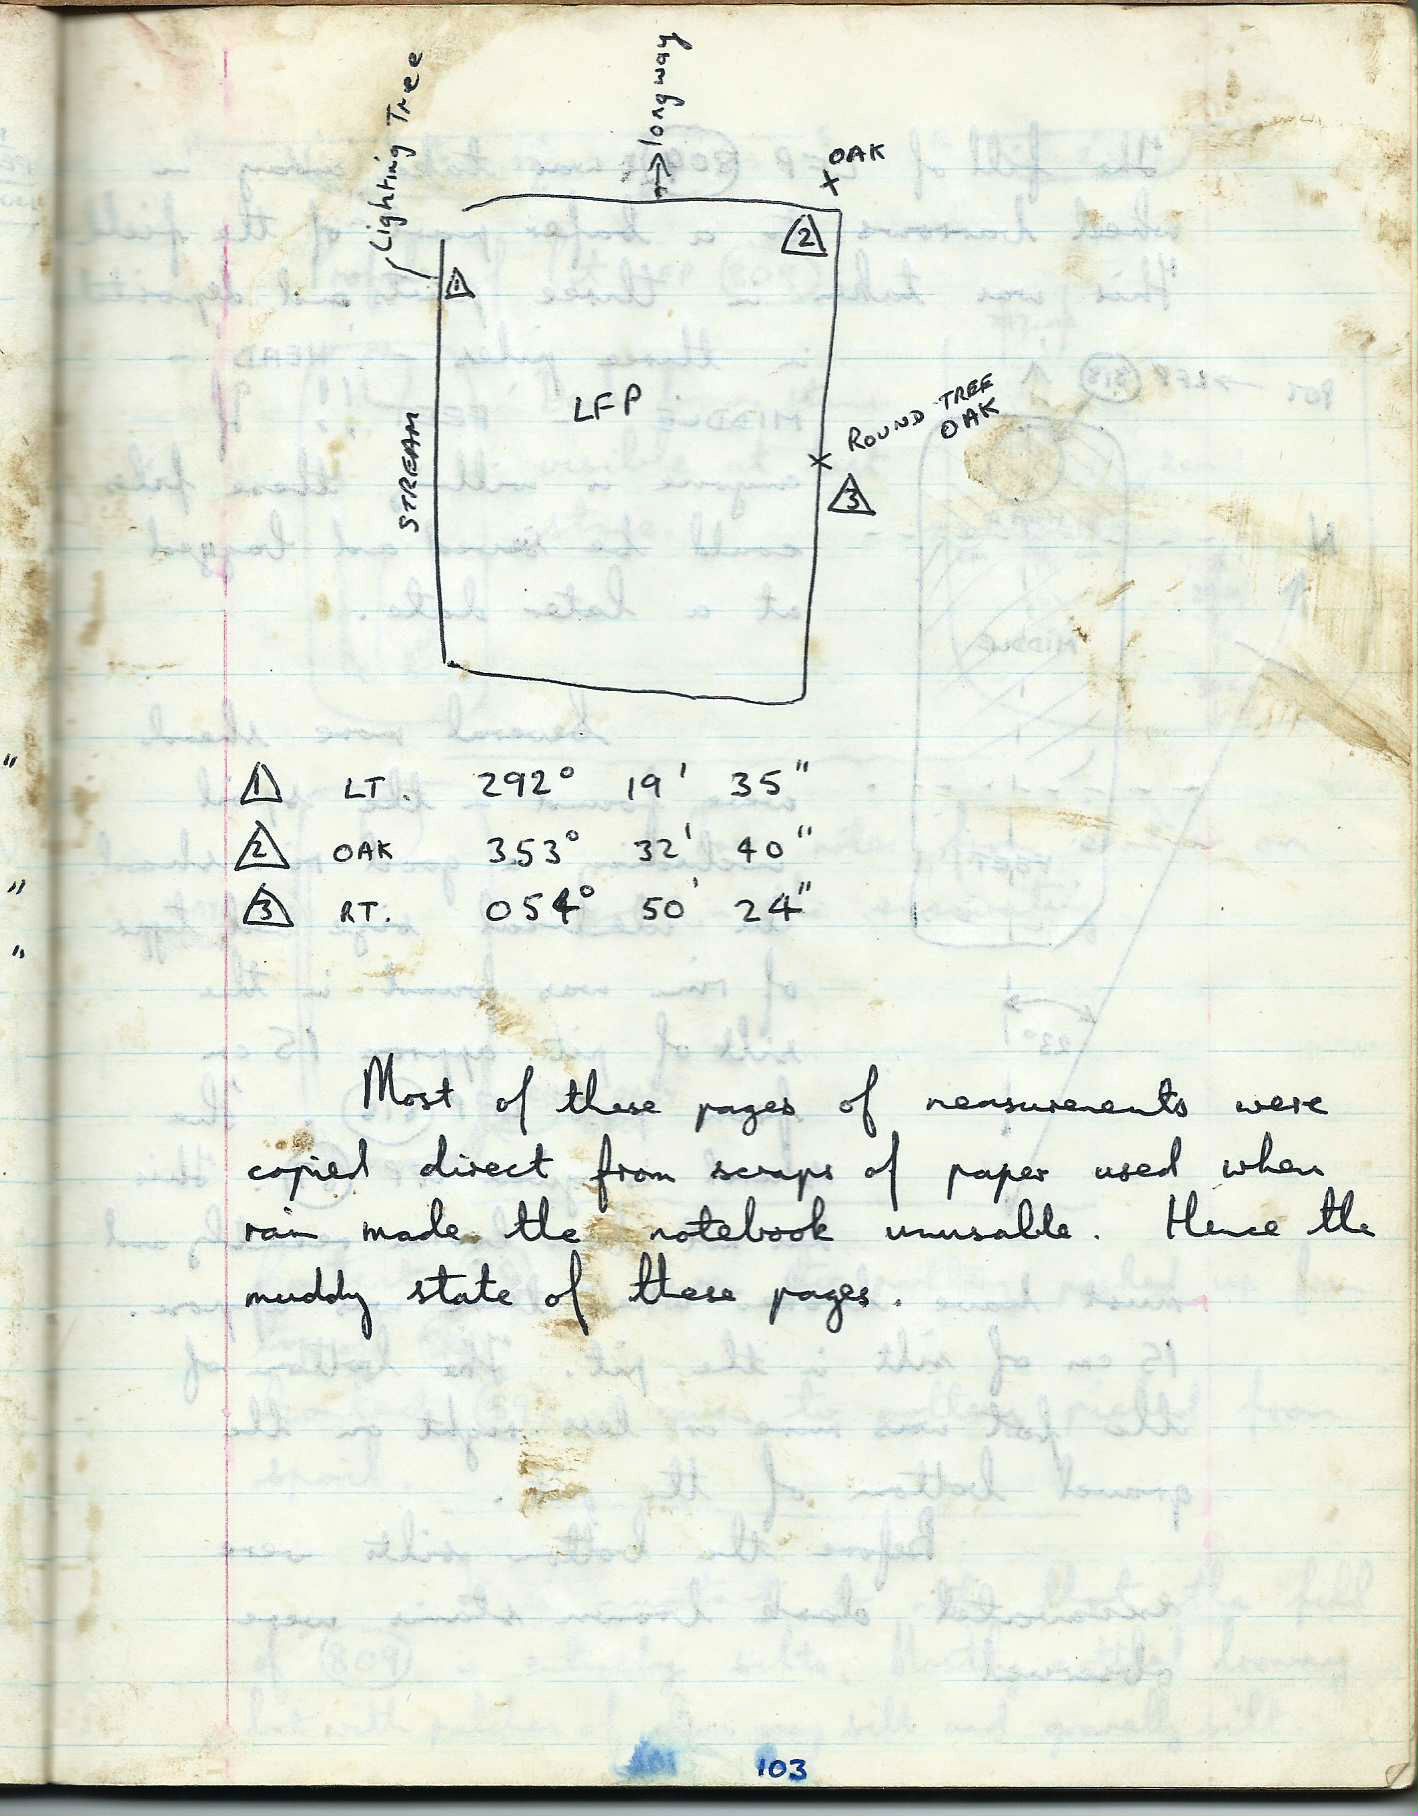 Lighting Tree
→ longway
OAK
2
1
LFP
ROUND TREE
OAK
3
STREAM
"
1 LT. 292° 19' 35"
2 OAK 353° 32' 40"
"
3 RT. 054° 50' 24"
"
Most of these pages of measurements were
copied direct from scraps of paper used when
rain made the notebook unusable. Hence the
muddy state of these pages.
103